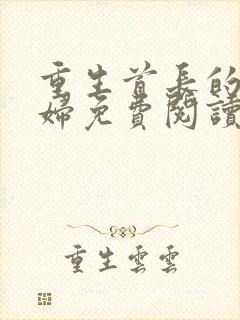 重生首長的
婦免費閱讀
重生雲雲